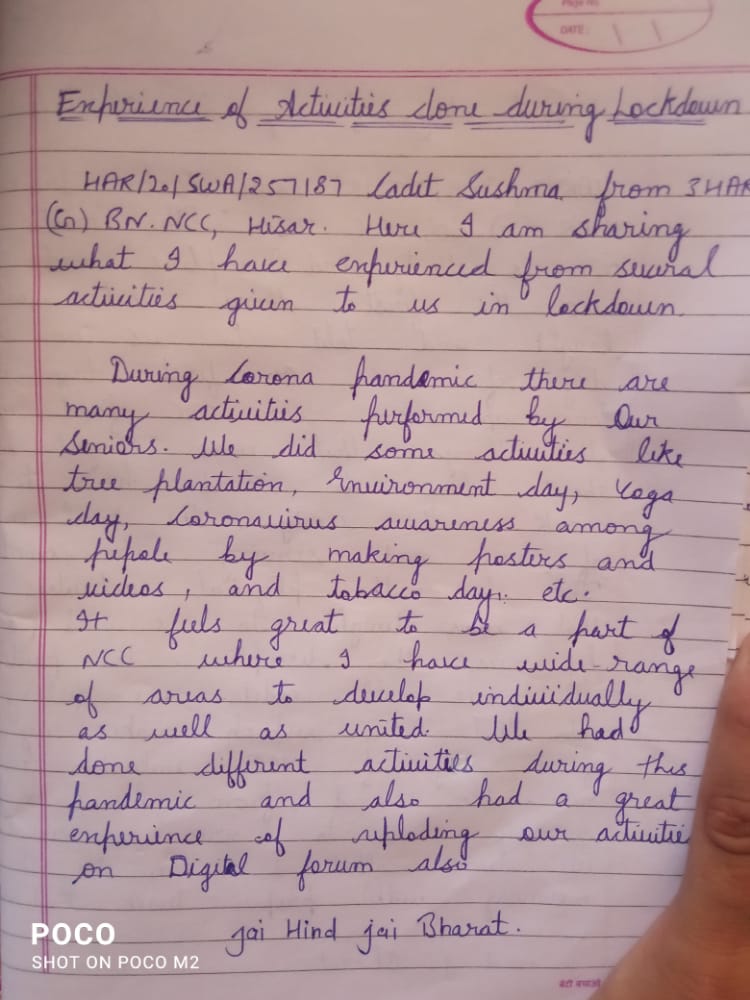 Page No.
DATE:
Experience of Activities done during Lockdown
HAR/20/SWA/257187 Cadet Sushma from 3HAR
(G) BN. NCC, Hisar. Here I am sharing
what I have experienced from several
activities given to us in lockdown.
During Corona pandemic there are
many activities performed by Our
Seniors. We did some activities like
tree plantation, Environment day, Yoga
day, Coronavirus awareness among
pepole by making posters and
videos, and tobacco day. etc.
It feels great to be a part of
NCC where I have wide-range
of areas to develop individually
as well as united. We had
done different activities during this
pandemic and also had a great
experience of uploding our activitie
on Digital forum also
Jai Hind Jai Bharat.
POCO
SHOT ON POCO M2
बेटी बचाओ